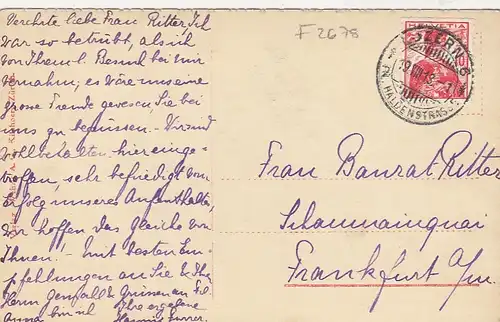 Verehrte liebe Frau Ritter Ich
war so betrübt, als ich
von Ihrem l. Besuch bei mir
vernahm, es wäre unsere
grosse Freude gewesen, Sie bei
uns zu begrüssen. Wir sind
wohlbehalten hier einge-
troffen, sehr befriedigt vom
Erfolg unseres Aufenthaltes,
Wir hoffen das Gleiche von
Ihnen. — Mit besten Em-
pfehlungen an Sie & Ihr
Herrn Gemahl & Grüssen an Frl
Anna bin ich Ihre ergebene
F 2678
HELVETIA
LUZERN
HALDENSTRASSE
Frau Baurat Ritter
Schaumainquai
Frankfurt a/m.